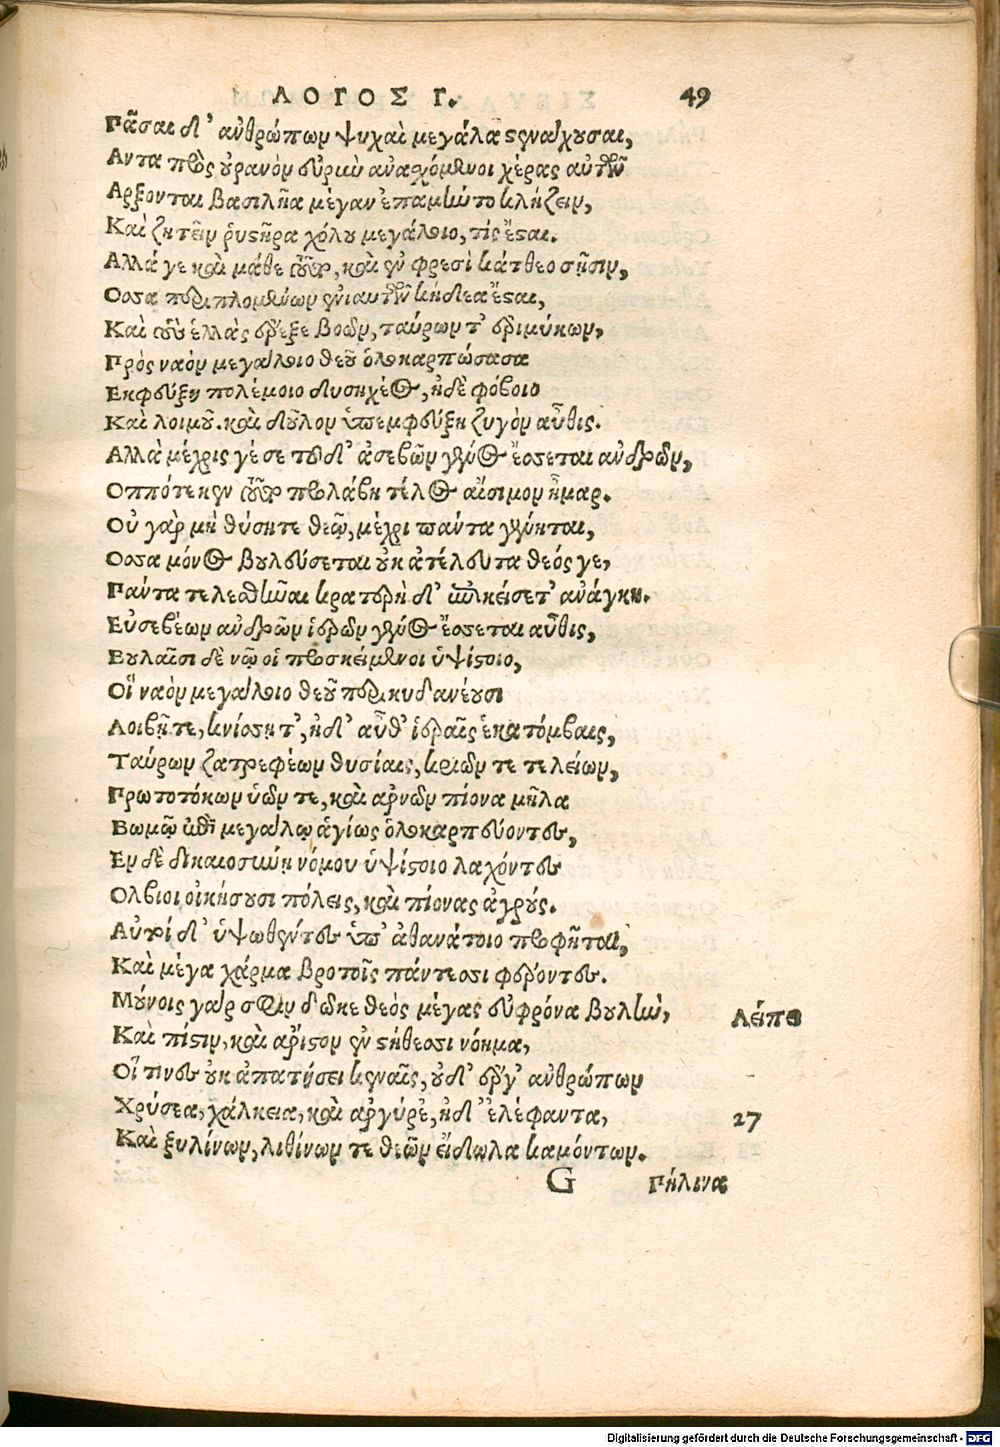 ΛΟΓΟΣ Γ. 49
Πᾶσαι δ' ἀνθρώπων ψυχαὶ μεγάλα στενάχουσαι,
Αντα πρὸς οὐρανὸν εὐρὺν ἀναχόμενοι χέρας αὐτῶν
Αρξονται βασιλῆα μέγαν ἐπαμύντο κλῄζειν,
Καὶ ζητεῖν ῥυστῆρα χόλου μεγάλοιο, τίς ἔσται.
Αλλά γε καὶ μάθε τοῦτο, καὶ ἐν φρεσὶ κάτθεο σῇσιν,
Οσσα περιπλομένων ἐνιαυτῶν κήδεα ἔσται,
Καὶ οὓς ἑλλὰς ἔρεξε βοῶν, ταύρων τ' ἐριμύκων,
Πρὸς ναὸν μεγάλοιο θεοῦ ὁλοκαρπώσασα
Εκφεύξῃ πολέμοιο δυσηχέος, ἠδὲ φόβοιο
Καὶ λοιμοῦ. καὶ δοῦλον ὑπεμφεύξῃ ζυγὸν αὖθις.
Αλλὰ μέχρις γέ σε τοῦδ' ἀσεβῶν γένος ἔσσεται ἀνδρῶν,
Οππότε κεν τοῦτο προλάβῃ τέλος αἴσιμον ἦμαρ.
Οὐ γὰρ μὴ θύσητε θεῷ, μέχρι πάντα γένηται,
Οσσα μόνος βουλεύσεται οὐκ ἀτέλευτα θεός γε,
Πάντα τελεσθῆναι κρατερὴ δ' ἐπικείσετ' ἀνάγκη.
Εὐσεβέων ἀνδρῶν ἱερῶν γένος ἔσσεται αὖθις,
Βουλαῖσι δὲ νῷ οἱ προσκείμενοι ὑψίστοιο,
Οἳ ναὸν μεγάλοιο θεοῦ περικυδανέουσι
Λοιβῇ τε, κνίσσῃ τ', ἠδ' αὖθ' ἱεραῖς ἑκατόμβαις,
Ταύρων ζατρεφέων θυσίαις, κριῶν τε τελείων,
Πρωτοτόκων ὑῶν τε, καὶ ἀρνῶν πίονα μῆλα
Βωμῷ ἐπὶ μεγάλῳ ἁγίως ὁλοκαρπεύοντες,
Εν δὲ δικαιοσύνῃ νόμου ὑψίστοιο λαχόντες
Ολβιοι οἰκήσουσι πόλεις, καὶ πίονας ἀγρούς.
Αὐτοί δ' ὑψωθέντες ὑπ' ἀθανάτοιο προφῆται,
Καὶ μέγα χάρμα βροτοῖς πάντεσσι φέροντες.
Μούνοις γάρ σφιν δῶκε θεός μέγας εὔφρονα βουλὴν, Λείπει
Καὶ πίστιν, καὶ ἄριστον ἐν στήθεσσι νόημα,
Οἵ τινες οὐκ ἀπατήσει κεναῖς, οὐδ' ἔργ' ἀνθρώπων
Χρύσεα, χάλκεια, καὶ ἀργύρε', ἠδ' ἐλέφαντα, 27
Καὶ ξυλίνων, λιθίνων τε θεῶν εἴδωλα καμόντων.
G Πήλινα
Digitalisierung gefördert durch die Deutsche Forschungsgemeinschaft - DFG